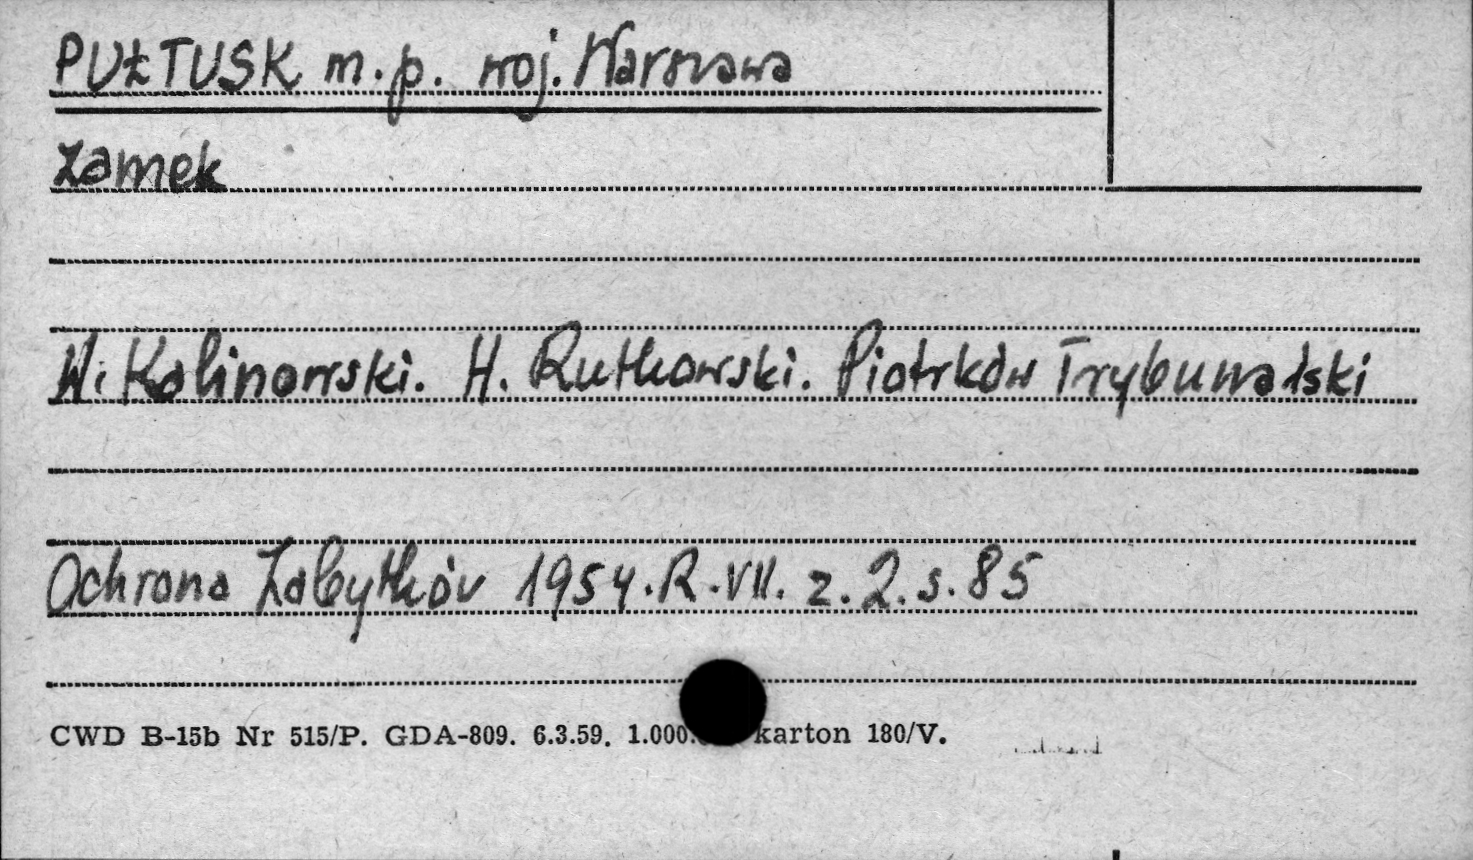 PUŁTUSK m.p. woj. Warszawa
Zamek
W. Kalinowski. H. Rutkowski. Piotrków Trybunalski
Ochrona Zabytków 1954. R. VII. z. 2. s. 85
CWD B-15b Nr 515/P. GDA-809. 6.3.59. 1.000. karton 180/V.